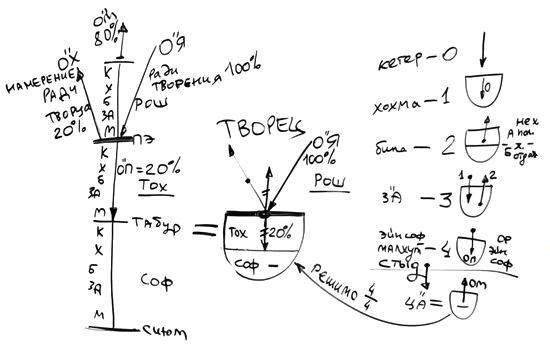 О"М
80%
О"Х
НАМЕРЕНИЕ
РАДИ
ТВОРЦА
20%
К
Х
Б
ЗА
М
РОШ
О"Я
РАДИ
ТВОРЕНИЯ 100%
ПЭ
К
Х
Б
ЗА
М
О"П=20%
ТОХ
ТАБУР
К
Х
Б
ЗА
М
СОФ
СИЮМ
=
ТВОРЕЦ
О"Я
100%
РОШ
ТОХ
20%
СОФ –
РЕШИМО 4/4
КЕТЕР – 0
ХОХМА – 1
О
БИНА – 2
З"А – 3
1
2
ЭЙНСОФ
МАЛХУТ – 4
ОП
ОР
ЭЙН
СОФ
СТЫД
Ц"А =
–
ОМ